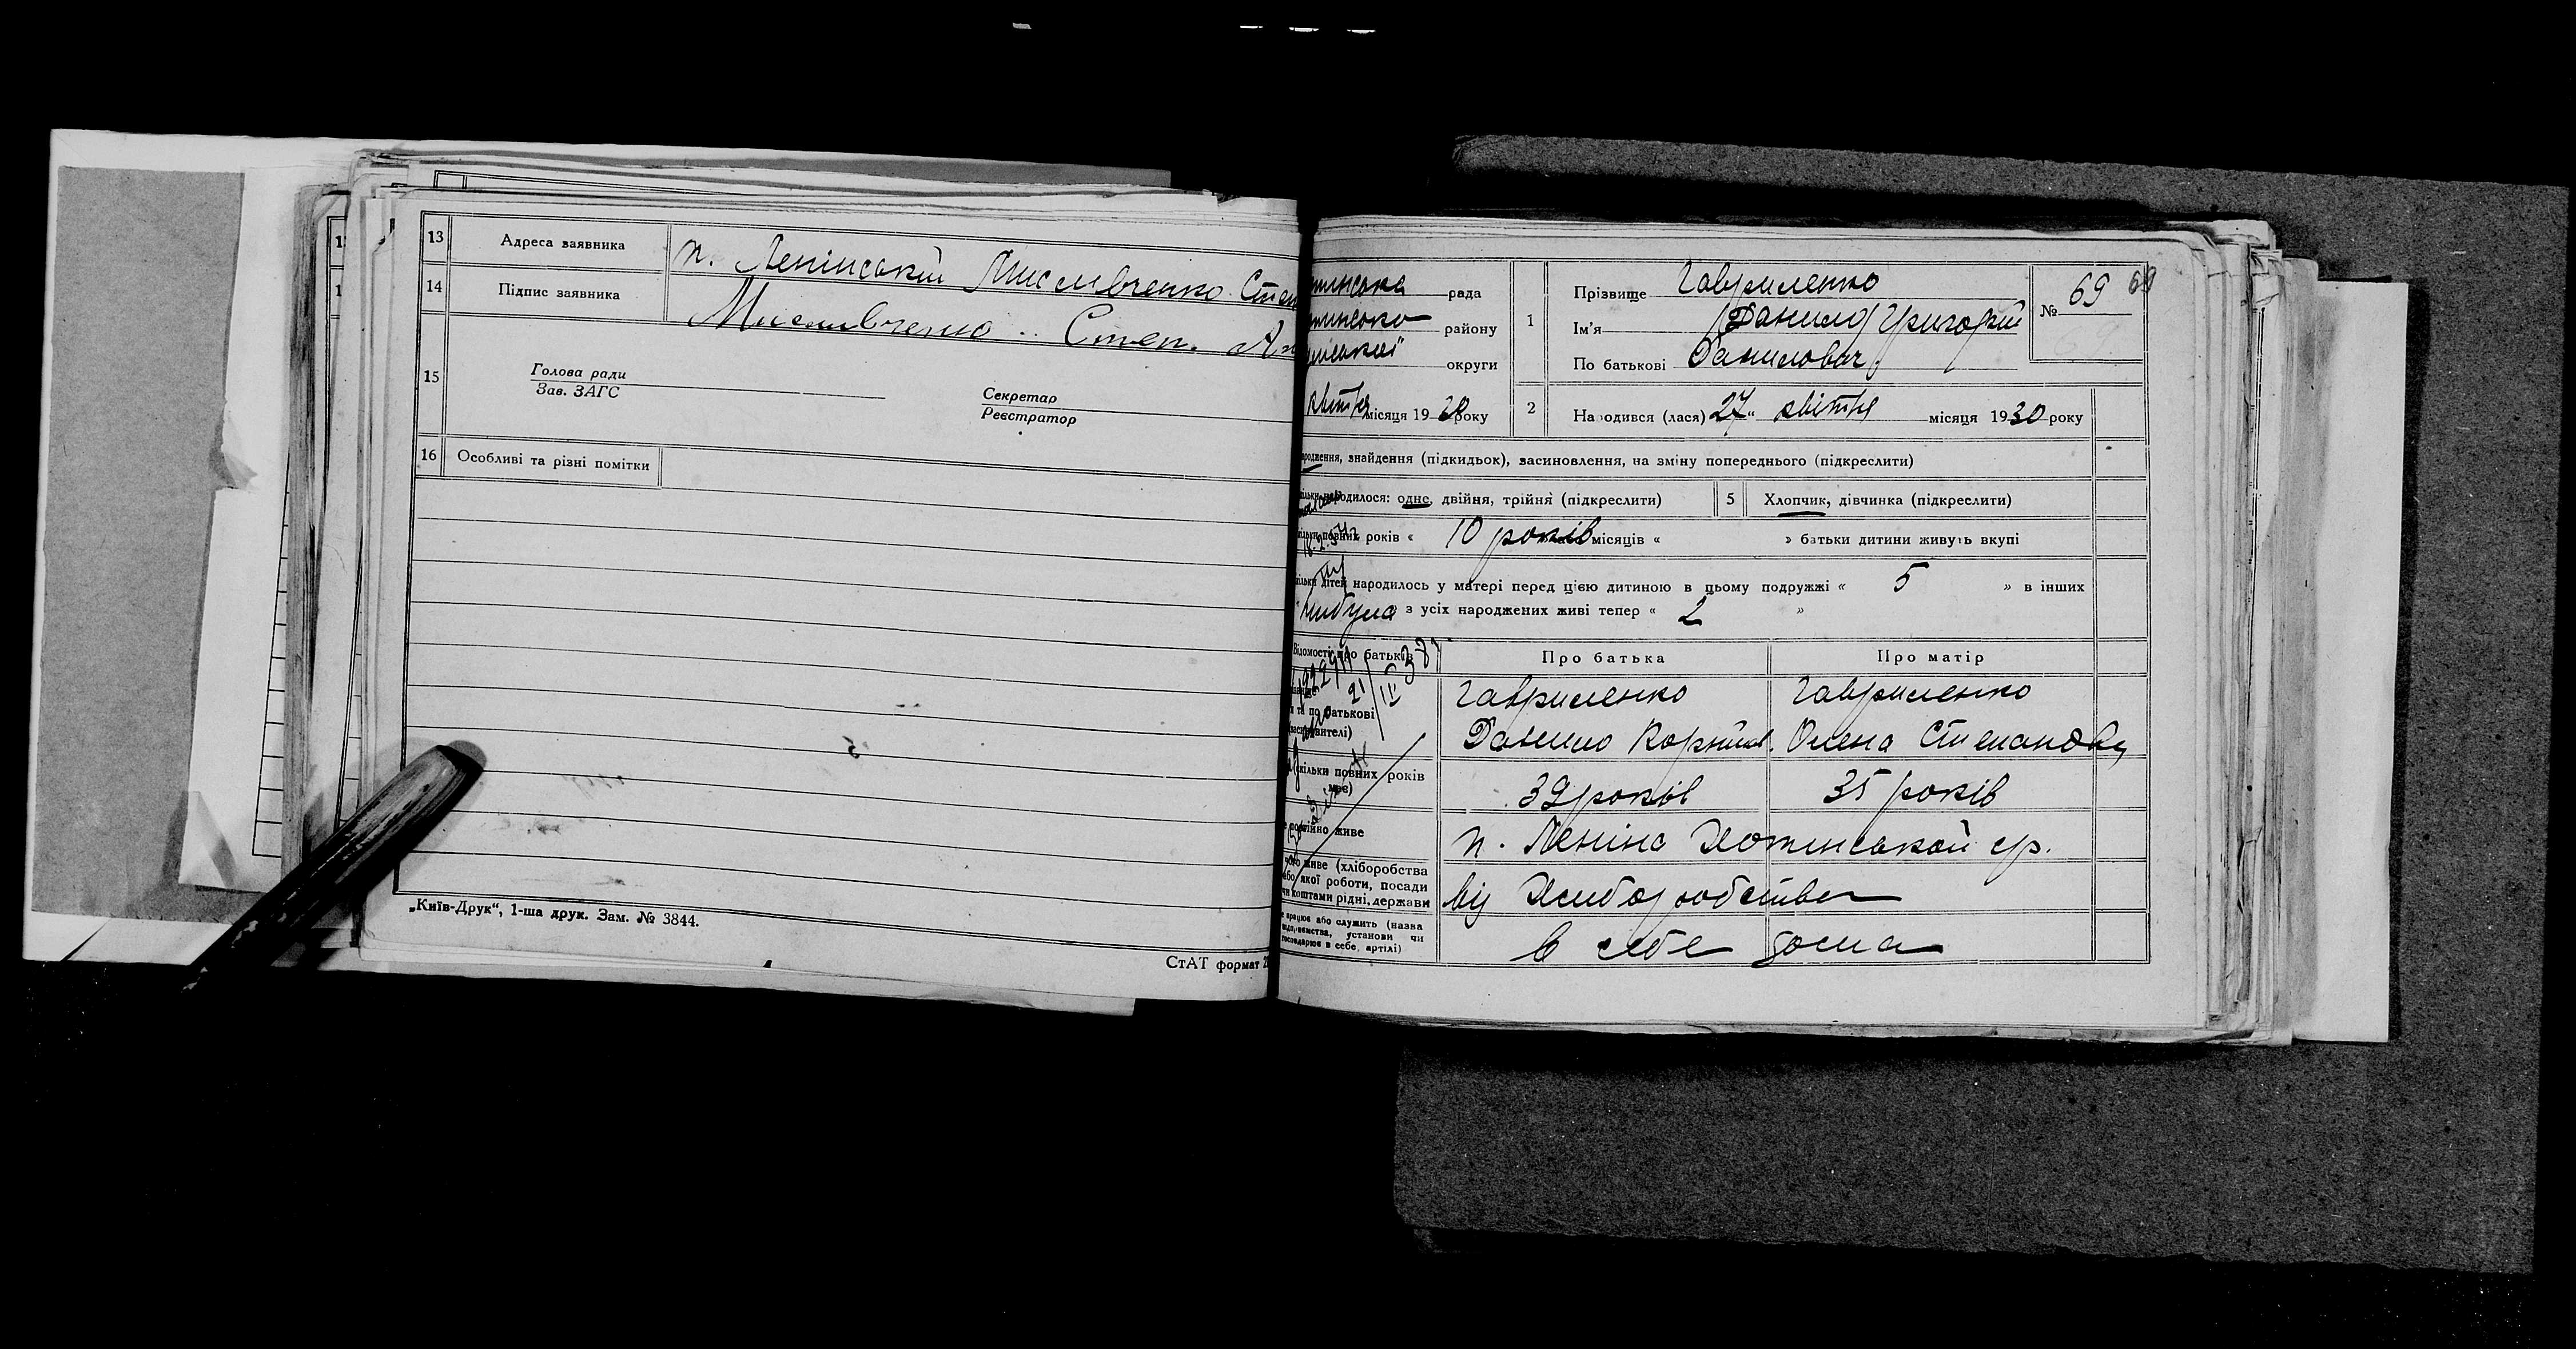 13 Адреса заявника п. Ленінський Мисливченко Степ
14 Підпис заявника Мисливченко Степ. Ан
15 Голова ради
Зав. ЗАГС
Секретар
Реєстратор
16 Особливі та різні помітки
„Київ-Друк“, 1-ша друк. Зам. № 3844.
СтАТ формат
тинська рада
тинсько району
округи
квітня місяця 1930 року
1 Прізвище Гавриленко
Ім'я Данило Григорій
По батькові Данилович
№ 69 69
2 Народився (лася) 27 „ квітня місяця 1930 року
родження, знайдення (підкидьок), засиновлення, на зміну попереднього (підкреслити)
народилося: одне, двійня, трійня (підкреслити) 5 Хлопчик, дівчинка (підкреслити)
повних років « 10 років місяців « » батьки дитини живуть вкупі
дітей народилось у матері перед цією дитиною в цьому подружжі « 5 » в інших
« з усіх народжених живі тепер « 2 »
Відомості про батьків Про батька Про матір
та по батькові
Гавриленко Гавриленко
Данило Корнійов. Олена Степановн
скільки повних років має) 39 років 35 років
постійно живе п. Леніна Хотинськой ср.
чого живе (хліборобства
або якої роботи, посади
чи коштами рідні, держави від Хліборобства
працює або служить (назва
установи чи
господарює в себе, артілі) в себе дома